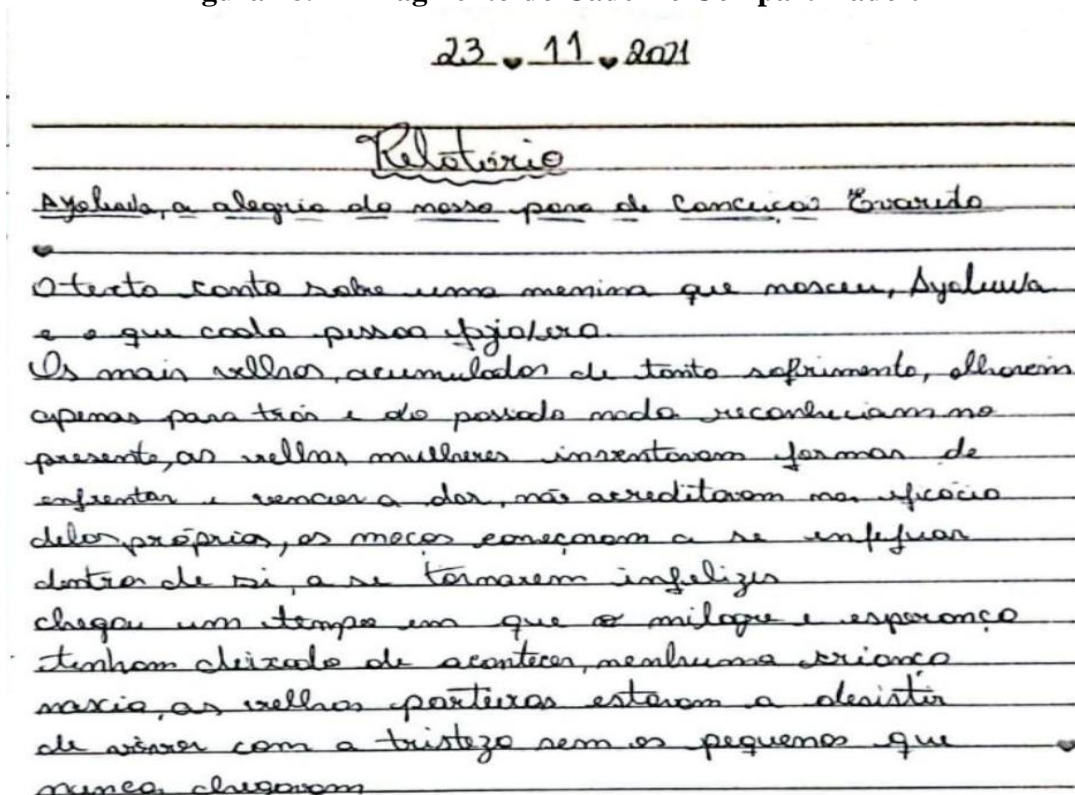 23 . 11 . 2021
Relatório
Ayoluwa, a alegria do nosso povo de Conceição Evaristo
O texto conta sobre uma menina que nasceu, Ayoluwa
e o que cada pessoa
Os mais velhos, acumulados de tanto sofrimento, olhavam
apenas para trás e do passado nada reconheciam no
presente, as velhas mulheres inventavam formas de
enfrentar e vencer a dor, não acreditavam na eficácia
delas próprias, os moços começaram a se
dentro de si, a se tornarem infelizes
chegou um tempo em que o milagre e esperança
tinham deixado de acontecer, nenhuma criança
nascia, as velhas parteiras estavam a desistir
de viver com a tristeza sem os pequenos que
nunca chegavam